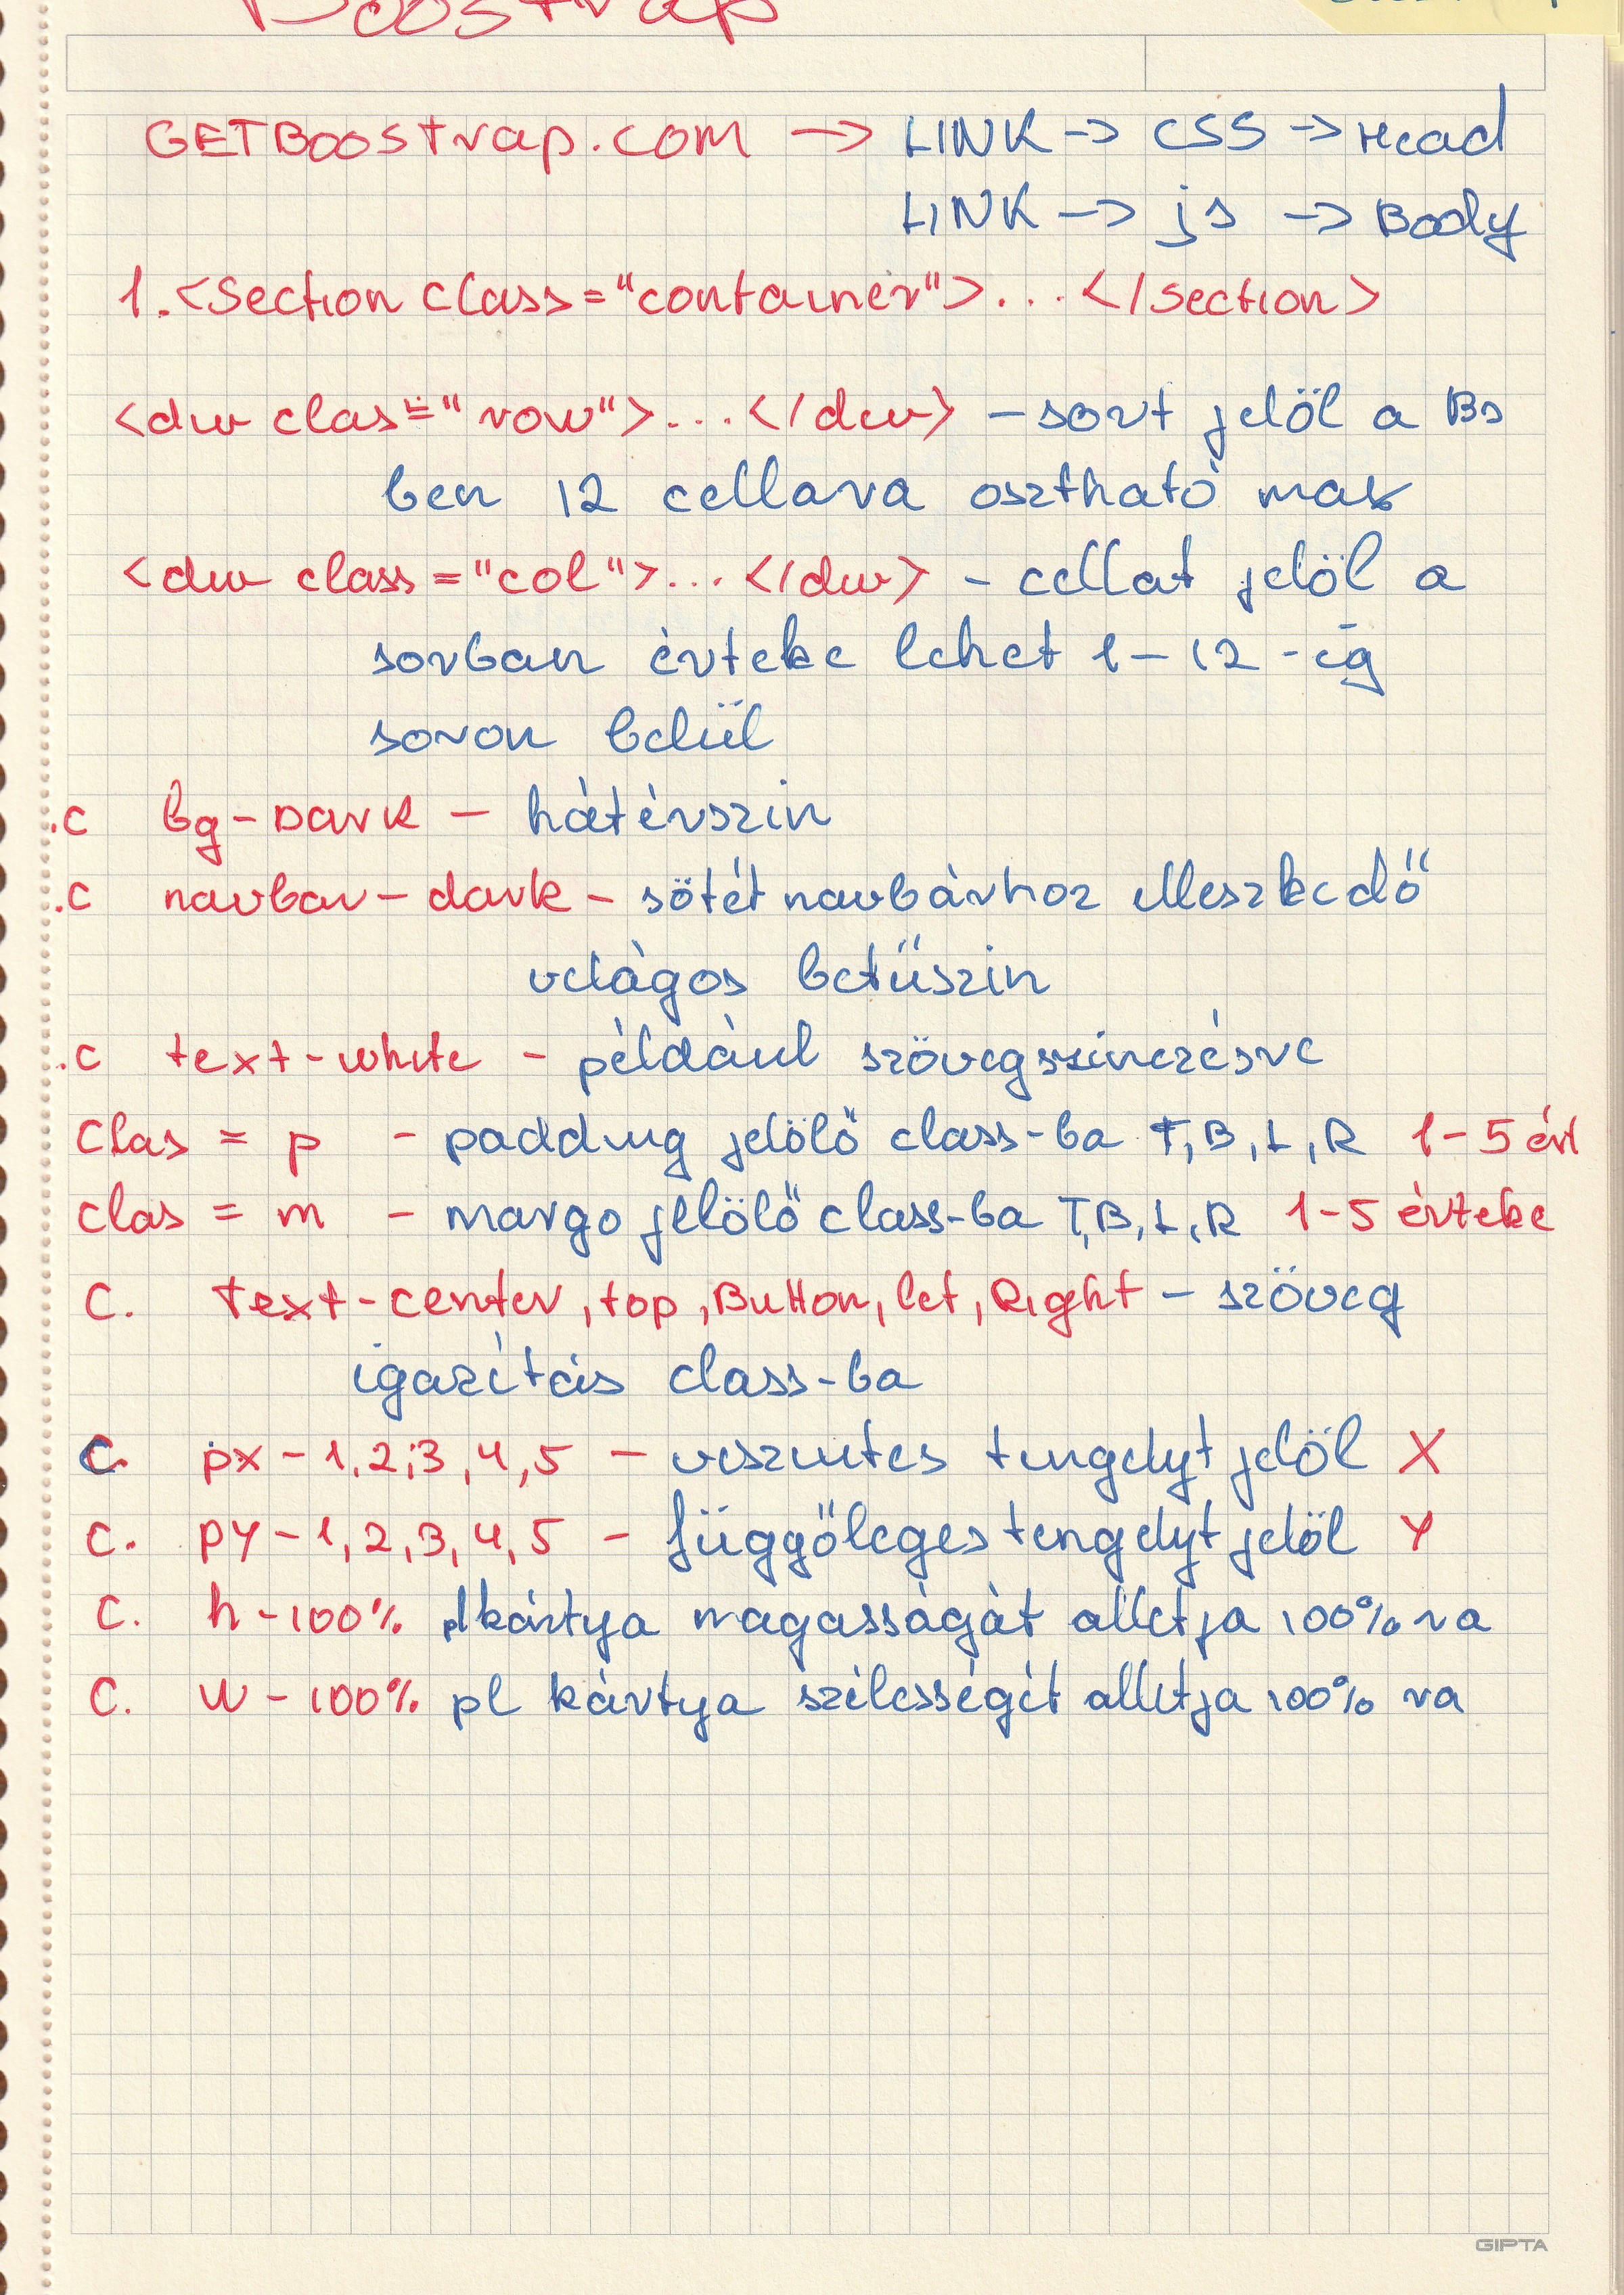 Boostrap
GETBOOStrap.COM -> LINK -> CSS -> Head
LINK -> js -> Body
1. <Section class="container">... </section>
<div clas="row">... </div> - sort jelöl a Bs
ben 12 cellara osztható max
<div class="col">... </div> - cellat jelöl a
sorban érteke lehet 1-12-ig
soron belül
.c bg-DARK - hátérszin
.c navbar-dark - sötét navbárhoz illeszkedő
világos betűszin
.c text-white - például szövegszinezésre
Clas = p - padding jelölő class-ba T,B,L,R 1-5 ért
clas = m - margo jelölő class-ba T,B,L,R 1-5 érteke
C. text-center, top, Button, let, Right - szöveg
igazítás class-ba
C. px-1,2,3,4,5 - vizsintes tengelyt jelöl X
C. py-1,2,3,4,5 - függőleges tengelyt jelöl Y
C. h-100% pl kártya magasságát allitja 100% ra
C. W-100% pl kártya szélességét allitja 100% ra
GIPTA